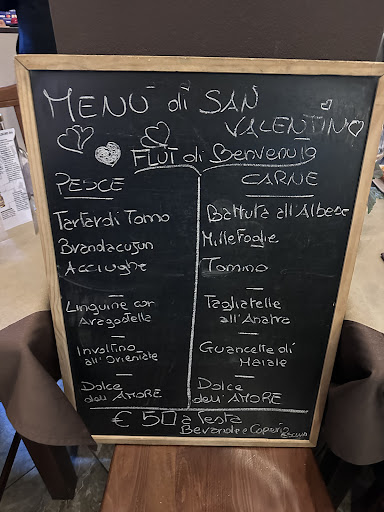 MENÙ di SAN
VALENTINO
FLUT di Benvenuto
PESCE
Tartar di Tonno
Brandacujun
Acciughe
Linguine con
Aragostella
Involtino
all'Orientale
Dolce
dell'AMORE
CARNE
Battuta all'Albese
Millefoglie
Tomino
Tagliatelle
all'Anatra
Guancette di
Maiale
Dolce
dell'AMORE
€ 50 a testa
Bevande e Coperto
esclusi